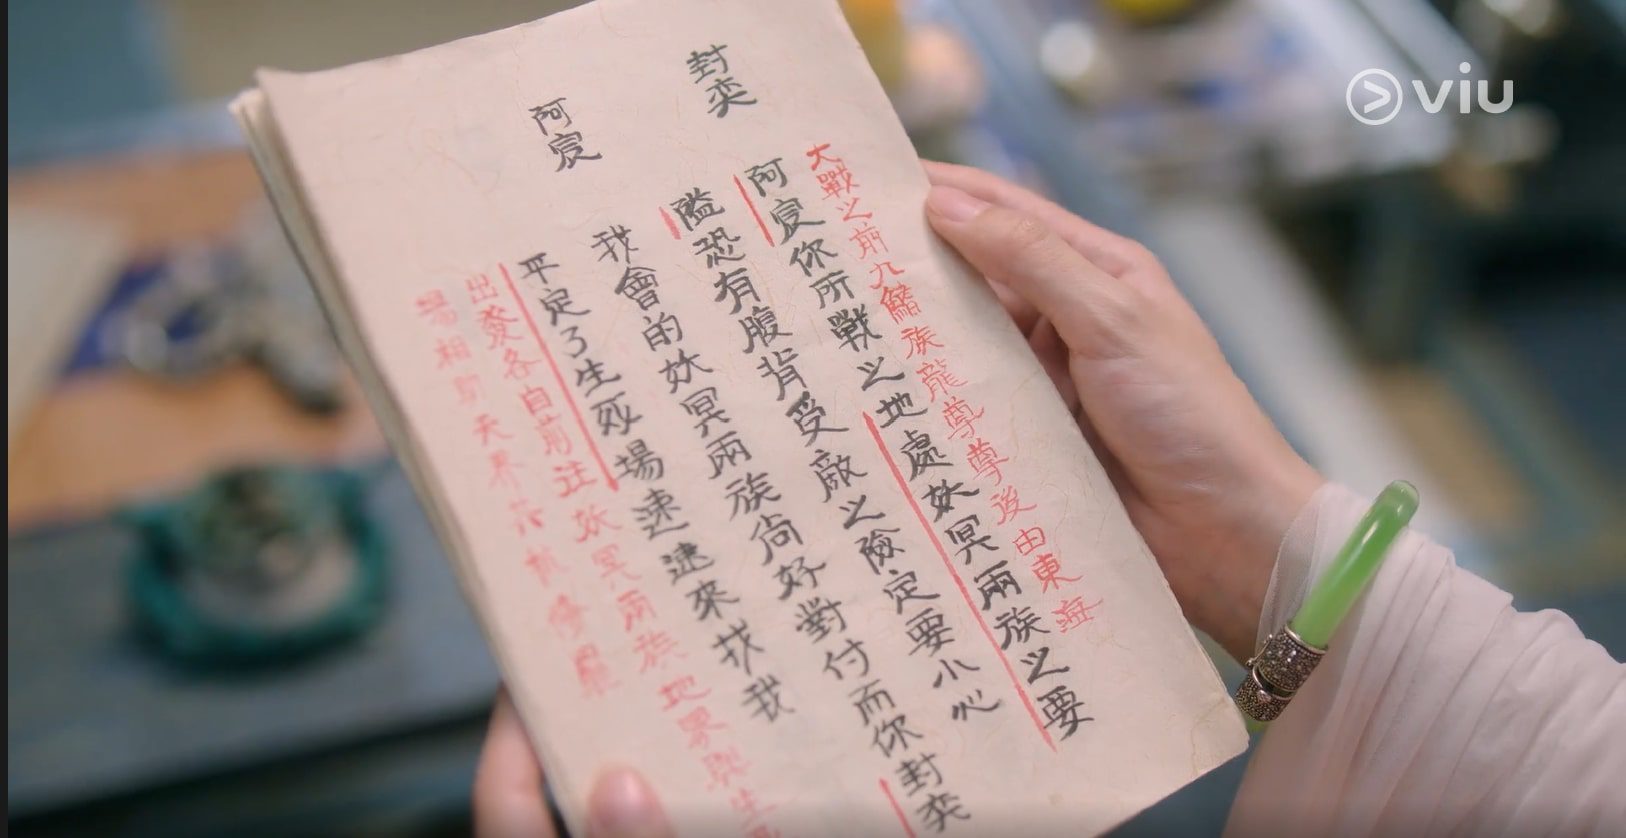 viu
大戰之前九鰭族龍尊尊後由東海
封奕
阿宸你所戰之地處妖冥兩族之要
隘恐有腹背受敵之險定要小心
阿宸
我會的妖冥兩族尚好對付而你封奕
平定了生死場速速來找我
出發各自前往妖冥兩族地界與生
場相
天界